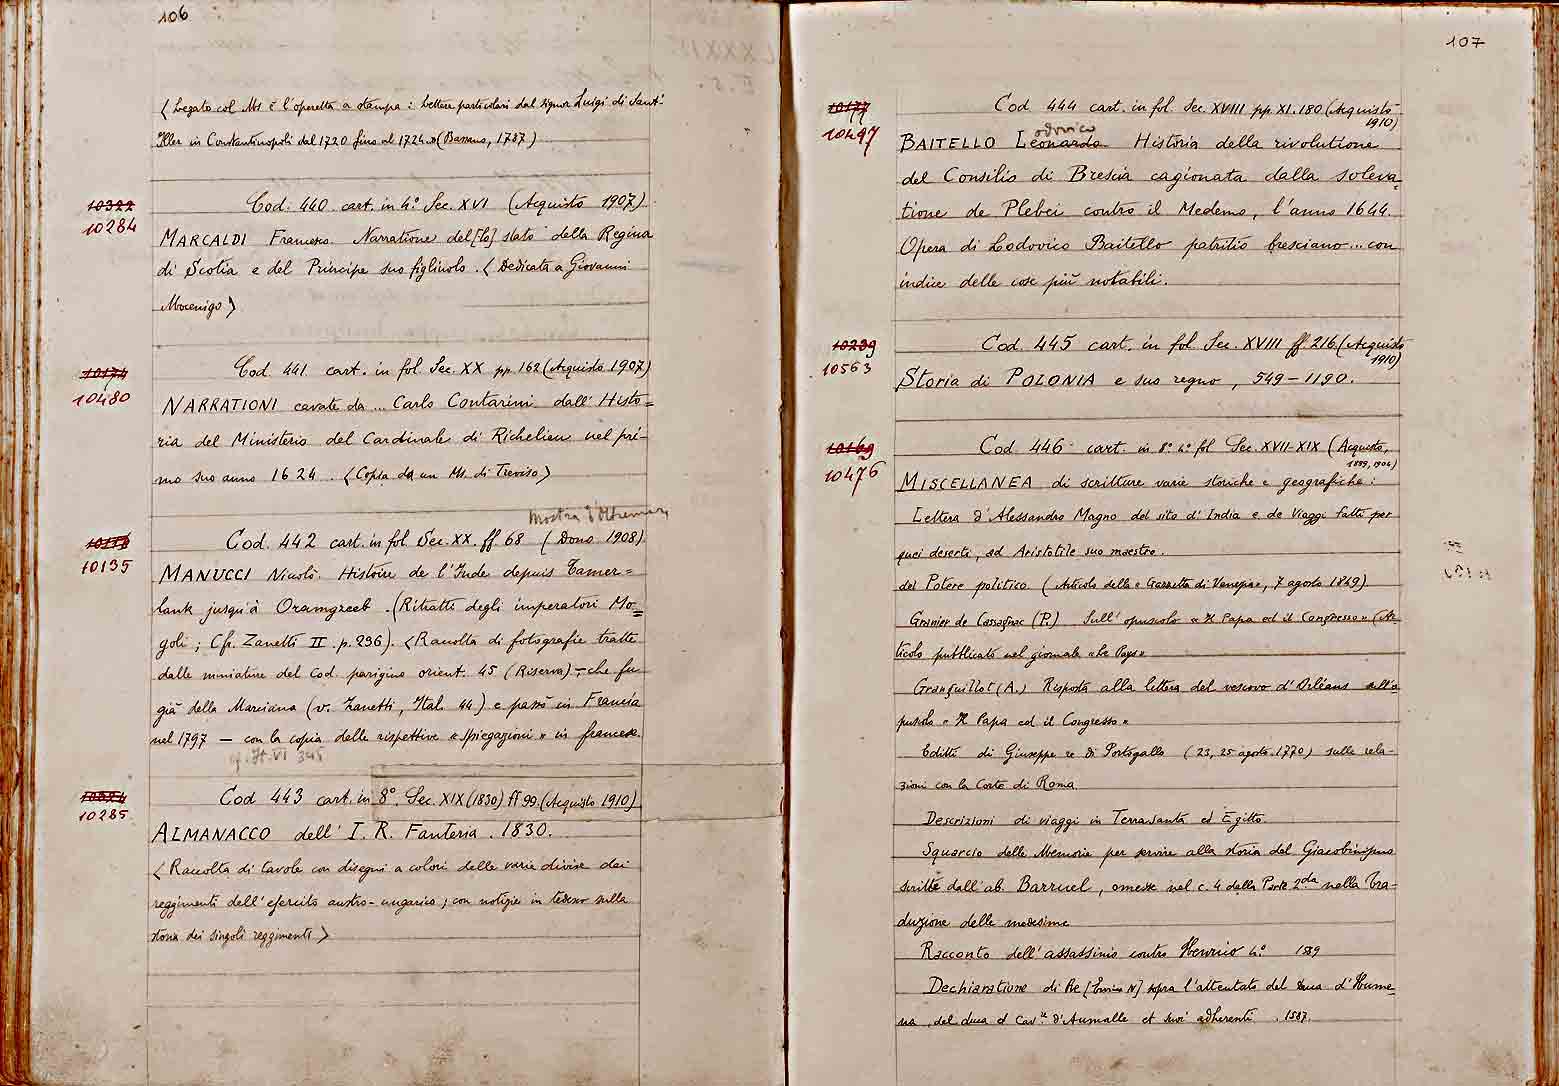 106
(Legato col Ms è l'operetta a stampa: Lettere particolari del signor Luigi di Sant'
Iller in Constantinopoli dal 1720 fino al 1724.» (Bassano, 1737)
10322
10284
Cod. 440. cart. in 4.° Sec. XVI (Acquisto 1907)
MARCALDI Francesco. Narratione del [lo] stato della Regina
di Scotia e del Principe suo figliuolo. < Dedicata a Giovanni
Mocenigo >
10174
10480
Cod. 441 cart. in fol Sec. XX pp. 162 (Acquisto 1907)
NARRATIONI cavate da ... Carlo Contarini dall' Histo=
ria del Ministerio del Cardinale di Richelieu nel pri-
mo suo anno 1624. < Copia da un Ms. di Treviso >
mostra d'Oltremare
10135
Cod. 442 cart. in fol Sec. XX. ff. 68 (Dono 1908)
MANUCCI Nicolò. Histoire de l'Inde depuis Tamer=
lank jusqu'à Oramgzeeb. (Ritratti degli imperatori Mo=
goli; Cfr. Zanetti II. p. 236). < Raccolta di fotografie tratte
dalle miniature del Cod. parigino orient. 45 (Riserva) – che fu
già della Marciana (v. Zanetti, Ital. 44) e passò in Francia
nel 1797 — con la copia delle rispettive « spiegazioni » in francese
cf. It. VI 345
10285
Cod 443 cart. in 8°. Sec. XIX (1830) ff 99. (Acquisto 1910)
ALMANACCO dell' I. R. Fanteria. 1830.
< Raccolta di tavole con disegni a colori delle varie divise dei
reggimenti dell'esercito austro-ungarico; con notizie in tedesco sulla
storia dei singoli reggimenti >
107
10177
10497
Cod. 444 cart. in fol. Sec. XVIII pp. XI. 180 (Acquisto
1910)
odovico
BAITELLO Leonardo Historia della rivolutione
del Consilio di Brescia cagionata dalla soleva=
tione de Plebei contro il Medemo, l'anno 1644.
Opera di Lodovico Baitello patritio bresciano... con
indice delle cose più notabili.
10239
10563
Cod. 445 cart. in fol Sec. XVIII ff 216. (Acquisto
1910)
Storia di POLONIA e suo regno, 549-1190.
10169
10476
Cod 446 cart. in 8° 4° fol Sec. XVII-XIX (Acquisto,
1899, 1906)
MISCELLANEA di scritture varie storiche e geografiche:
Lettera d'Alessandro Magno del sito d'India e de Viaggi fatti per
quei deserti, ad Aristotile suo maestro.
del Potere politico (Articolo della « Gazzetta di Venezia », 7 agosto 1849)
Granier de Cassagnac (P.) Sull' opuscolo « Il Papa ed il Congresso » (Ar-
ticolo pubblicato nel giornale « Le Pays »
Granguillot (A.) Risposta alla lettera del vescovo d'Orléans sull'o
puscolo « Il Papa ed il Congresso »
Editti di Giuseppe re di Portogallo (23, 25 agosto. 1770) sulle rela-
zioni con la Corte di Roma.
Descrizioni di viaggi in Terrasanta ed Egitto.
Squarcio delle Memorie per servire alla storia del Giacobinismo
scritte dall'ab. Barruel, omesse nel c. 4 della Parte 2da nella tra-
duzione delle medesime
Racconto dell'assassinio contro Henrico 4.° 1589
Dechiaratione di Re [Enrico IV] sopra l'attentato del Duca d'Hume=
na, del duca e Cav.re d'Aumalle et suoi adherenti. 1587.